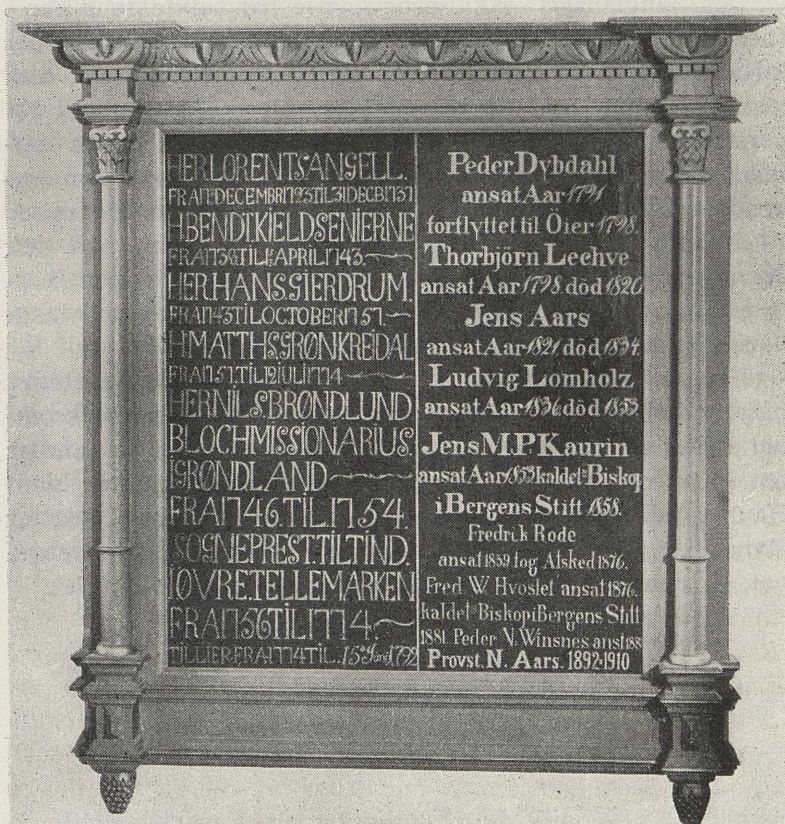 HER LORENTS ANGELL.
FRA 1 DECEMBR 1723 TIL 31 DECBR 1737
H. BENDT. KIELDSEN IERNE
FRA 1736 TIL 1 APRIL 1743.
HER. HANS. GIERDRUM.
FRA 1743 TIL OCTOBER 1757.
H. MATTHS. GRØNKREIDAL
FRA 1757. TIL 12 IULI 1774
HER NILS. BRØNDLUND
BLOCH MISSIONARIUS.
I GRØNDLAND
FRA 1746. TIL. 1754.
SOGNEPREST. TIL TIND.
I ØVRE. TELLEMARKEN
FRA 1756 TIL 1774.
TIL LIER. FRA 1774 TIL. 15de Junii 1792
Peder Dybdahl
ansat Aar 1791
forflyttet til Öier 1798.
Thorbjörn Leehve
ansat Aar 1798 död 1820
Jens Aars
ansat Aar 1821 död 1834.
Ludvig Lomholz
ansat Aar 1836 död 1853.
Jens M.P. Kaurin
ansat Aar 1853 kaldet Biskop
i Bergens Stift 1858.
Fredrik Rode
ansat 1859 tog Afsked 1876.
Fred. W. Hvoslef ansat 1876.
kaldet Biskop i Bergens Stift
1881. Peder V. Winsnes anst 188
Provst. N. Aars. 1892-1910